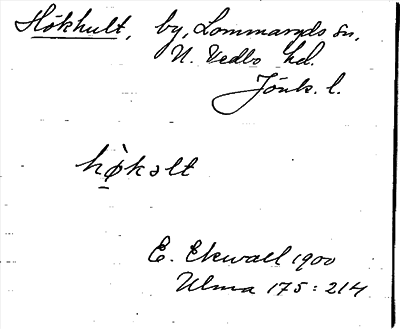 Hökhult, by, Lommaryds sn,
N. Vedbo hd.
Jönk. l.
hø̀kəlt
E. Ekwall 1900
Ulma 175:214